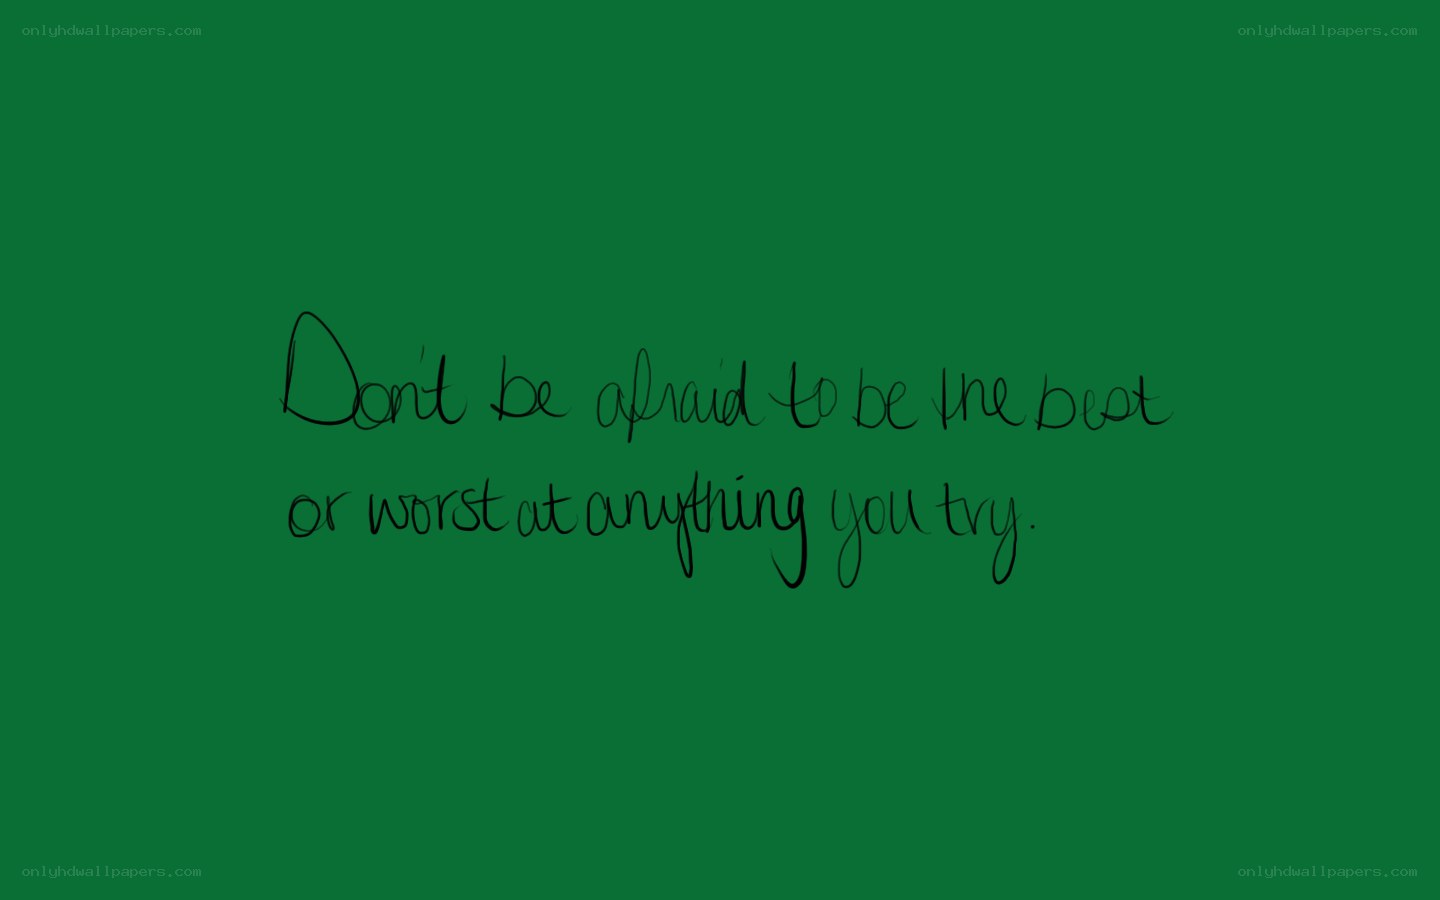 onlyhdwallpapers.com onlyhdwallpapers.com
Don't be afraid to be the best
or worst at anything you try.
onlyhdwallpapers.com onlyhdwallpapers.com